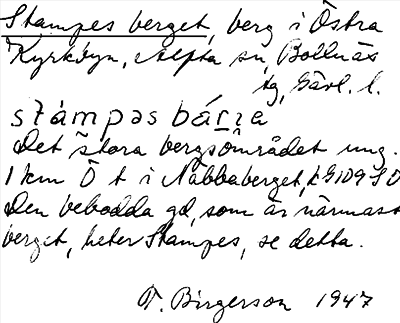 Stampes berget, berg i Östra
Kyrkbyn, Alfta sn, Bollnäs
tg, Gävl. l.
stàmpəs bárɟa
Det stora bergsområdet ung.
1 km Ö t i Nabbaberget, LG109 SO
Den bebodda gd, som är närmast
berget, heter Stampes, se detta.
T. Birgerson 1947